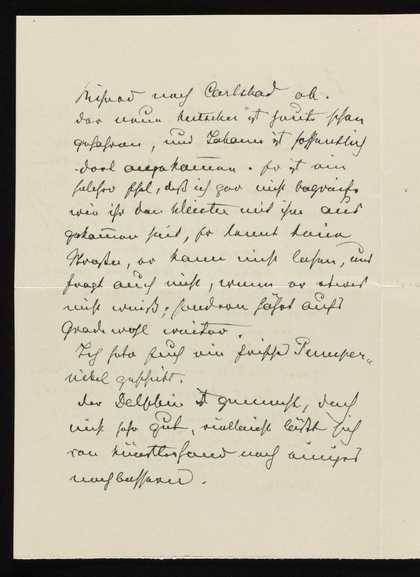 nach Carlsbad ab.
Der neue Kutscher ist heute schon
gefahren, und Johann ist hoffentlich
dort angekommen. Er ist ein
solcher Esel, daß ich gar nicht begreife
wie ihr den Winter mit ihm aus
gekommen seid, er kennt keine
Straße, er kann nicht lesen, und
fragt auch nicht, wenn er etwas
nicht weiß, sondern fährt aufs
Gradewohl weiter.
Ich habe Euch ein frisches Pumper=
nickel geschickt.
Der Delphin ist gemacht, doch
nicht sehr gut, vielleicht läßt sich
von Künstlerhand noch einiges
nachbessern.